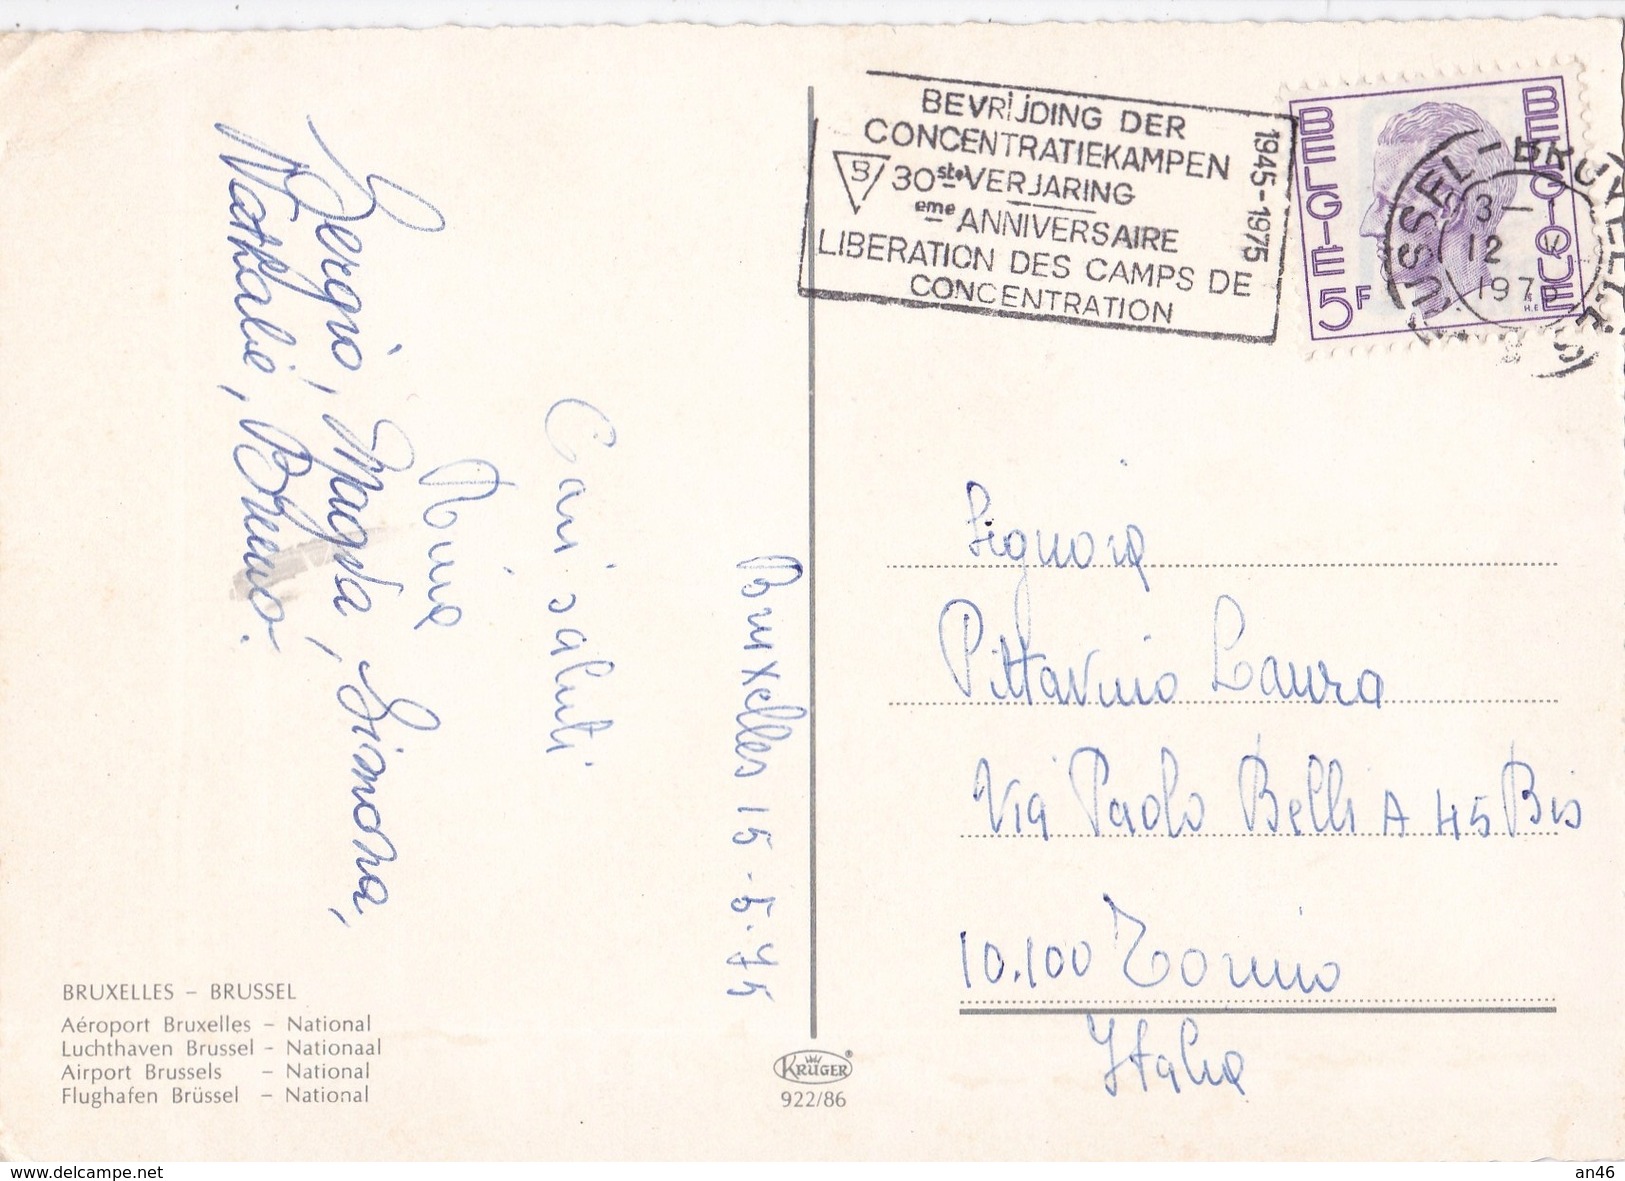 BEVRIJDING DER
CONCENTRATIEKAMPEN
B 30ste VERJARING
eme ANNIVERSAIRE
LIBERATION DES CAMPS DE
CONCENTRATION
1945-1975
BELGIE
BELGIQUE
5F
BRUSSEL - BRUXELLES
12 V
1975
Bruxelles 15-5-75
Cari saluti
Nina
Sergio, Magda, Simona,
Nathalie, Bruno.
Signora
Pittavino Laura
Via Paolo Belli A 45 Bis
10.100 Torino
Italia
BRUXELLES – BRUSSEL
Aéroport Bruxelles – National
Luchthaven Brussel – Nationaal
Airport Brussels – National
Flughafen Brüssel – National
KRÜGER®
922/86
www.delcampe.net
an46